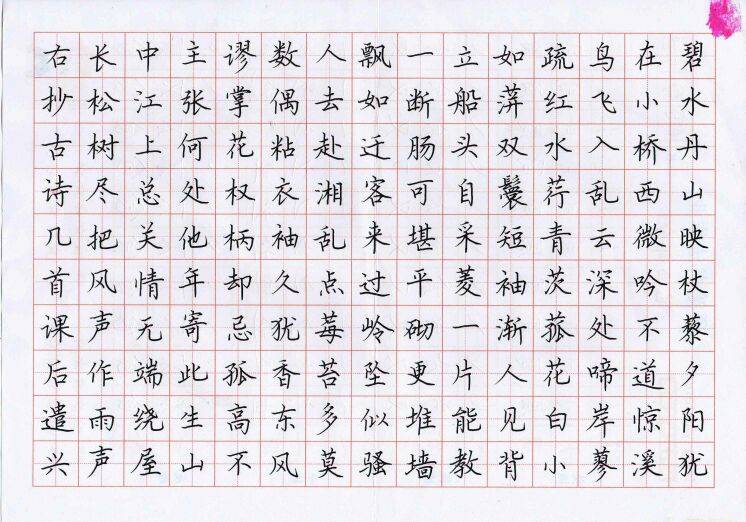 碧水丹山映杖藜夕阳犹
在小桥西微吟不道惊溪
鸟飞入乱云深处啼岸蓼
疏红水荇青茨菰花白小
如萍双鬟短袖渐人见背
立船头自采菱一片能教
一断肠可堪平砌更堆墙
飘如迁客来过岭坠似骚
人去赴湘乱点莓苔多莫
数偶粘衣袖久犹香东风
谬掌花权柄却忌孤高不
主张何处他年寄此生山
中江上总关情无端绕屋
长松树尽把风声作雨声
右抄古诗几首课后遣兴